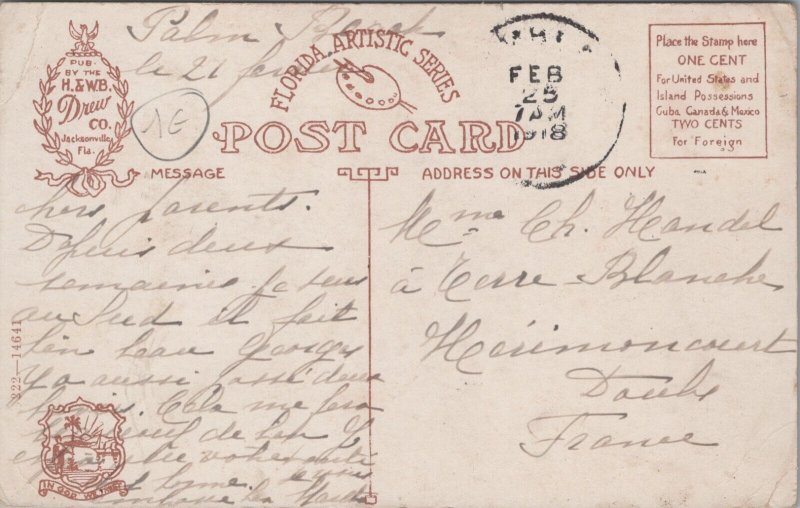 Palm Beach
le 21 fevrier
PUB.
BY THE
H. & W.B.
Drew
CO.
Jacksonville,
Fla.
FLORIDA ARTISTIC SERIES
POST CARD
FEB
25
7 AM
1918
Place the Stamp here
ONE CENT
For United States and
Island Possessions
Cuba, Canada & Mexico
TWO CENTS
For Foreign
MESSAGE
ADDRESS ON THIS SIDE ONLY
chers parents.
Depuis deux
semaines je suis
au Sud il fait
bien beau Georges
y a aussi passé deux
mois. Cela me fera
de bien
votre santé
est bonne
embrasse
222—14641
IN GOD WE TRUST
Mme Ch. Handel
à Terre-Blanche
Hérimoncourt
Doubs
France